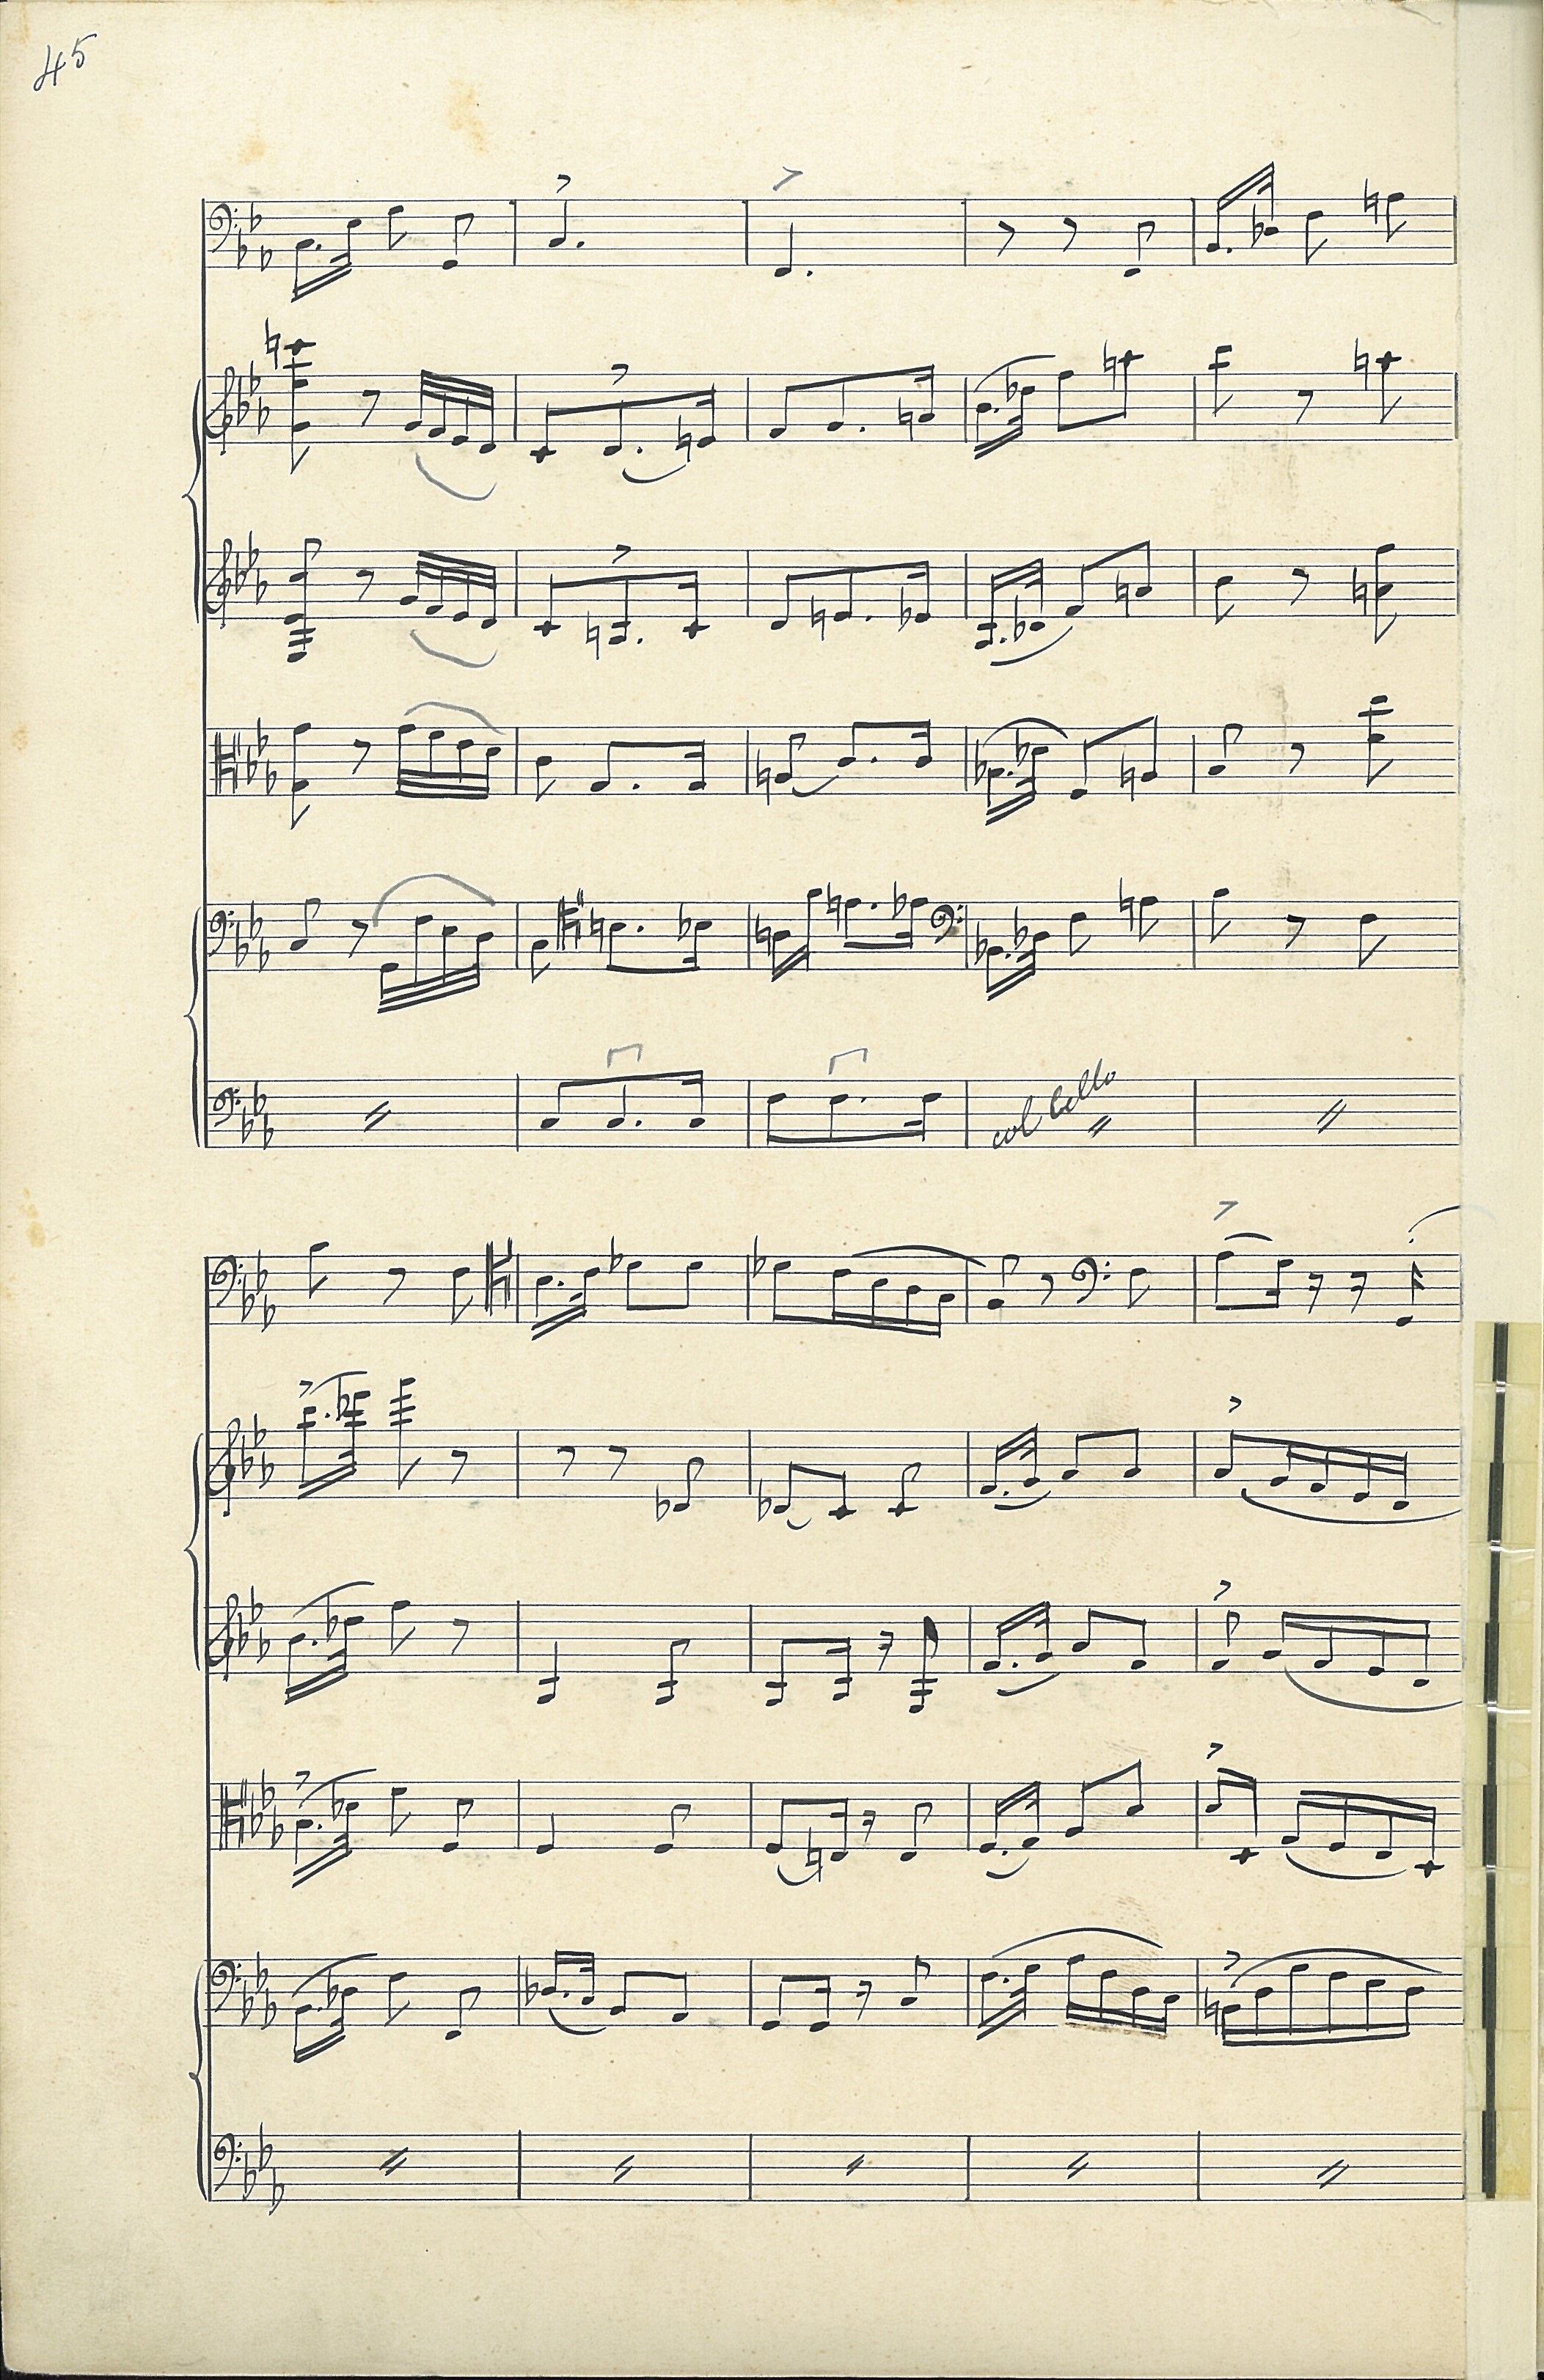 45
col Cello